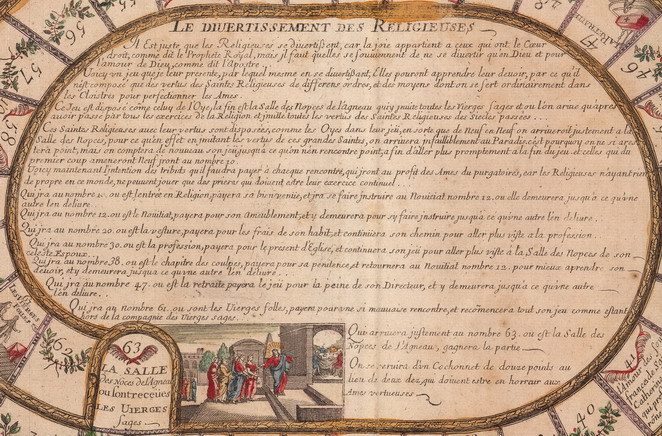 LE DIUERTISSEMENT DES RELIGIEUSES
Il Est juste que les Religieuses se diuertissent, car la joie appartient a ceux qui ont le Cœur
droit, comme dit le Prophete Royal, mais il faut quelles se souuiennent de ne se diuertir qu'en Dieu et pour
l'amour de Dieu, comme dit l'Apostre.
Voicy un jeu que je leur presente, par lequel mesme en se diuertissant, Elles pouront apprendre leur deuoir, par ce qu'il
n'est composé que des vertus des Saintes Religieuses de differens ordres, et des moyens dont on se sert ordinairement dans
les Cloistres pour perfectionner les Ames.
Ce Jeu est disposé come celuy de l'Oye, la fin est la Salle des Nopces de l'Agneau qui y jnuite toutes les Vierges sages et ou l'on ariue qu'apres
auoir passé par tous les exercices de la Religion et jmité toutes les vertus des Saintes Religieuses des Siecles passées
Ces Saintes Religieuses auec leur vertus sont disposées, comme les Oyes dans leur jeu, en sorte que de Neuf en Neuf on arriueroit justement a la
Salle des Nopces, pour ce qu'en effet en jmitant les vertus de ces grandes Saintes, on arriuera jnfailliblement au Paradis, c'est pourquoy on ne si ares
tera point, mais on comptera de nouueau son jeu jusqu'a ce qu'on n'en rencontre point, a fin d'aller plus promptement a la fin du jeu et celles qui du
premier coup ameneront Neuf jront au nombre 30.
Voicy maintenant l'intention des tributs qu'il faudra payer a chaque rencontre, qui jront au profit des Ames du purgatoire, car les Religieuses n'ayant rien
de propre en ce monde, ne peuuent jouer que des prieres qui doiuent estre leur exercice continuel
Qui jra au nombre 1. ou est l'entrée en Religion, payera sa bienuenüe, et jra se faire jnstruire au Nouiciat nombre 12, ou elle demeurera jusqu'a ce qu'vne
autre l'en deliure.
Qui jra au nombre 12. ou est le Nouitiat, payera pour son Ameublement, et y demeurera pour sy faire jnstruire jusqu'a ce qu'vne autre l'en deliure.
Qui jra au nombre 20. ou est la vesture, payera pour les frais de son habit, et continuera son chemin pour aller plus viste a la profession.
Qui jra au nombre 30. ou est la profession, payera pour le present d'Eglise, et continuera son jeu pour aller plus viste à la Salle des Nopces de son
celeste Espoux.
Qui jra au nombre 38. ou est le chapitre des coulpes, payera pour sa penitence, et retournera au Nouitiat nombre 12. pour mieux aprendre son
deuoir, et y demeurera jusqua ce qu'vne autre l'en deliure
Qui jra au nombre 47. ou est la retraite payera le jeu pour la peine de son Directeur, et y demeurera jusqu'a ce qu'vne autre
l'en deliure.
Qui jra au nombre 61. ou sont les Uierges folles, payera pour une si mauuaise rencontre, et recōmencera tout son jeu comme estant
hors de la compagnie des Vierges sages
Qui arriuera justement au nombre 63. ou est la Salle des
Nopces de l'Agneau, gagnera la partie
On se seruira d'vn Cochonnet de douze points au
lieu de deux dez, qui doiuent estre en horreur aux
Ames vertueuses
63
LA SALLE
Des Noces de l'Agneau
ou sont receües
LES UIERGES
Sages
62
58
57
56
41
40